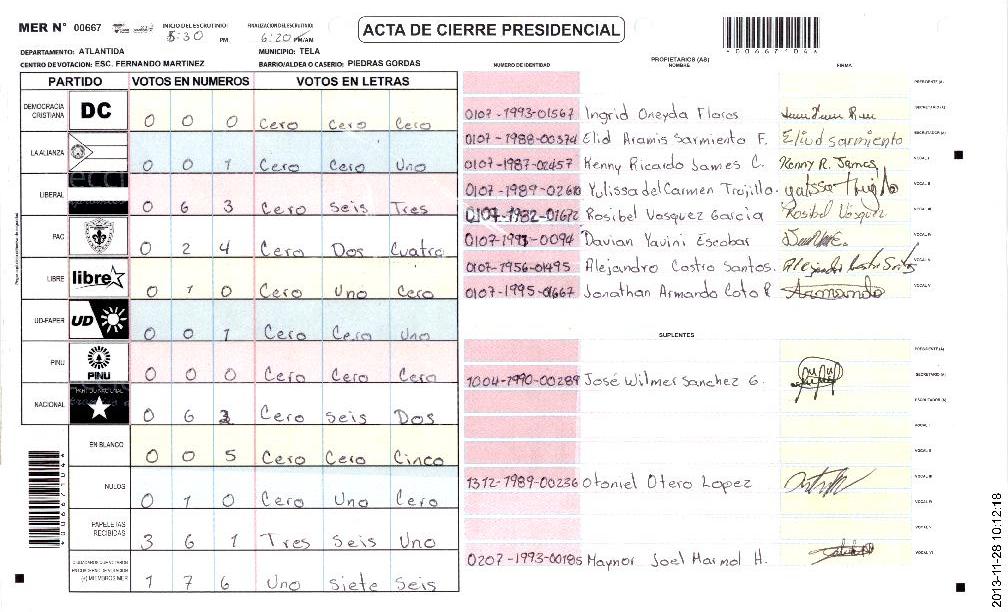 MER N° 00667
INICIO DEL ESCRUTINIO: 5:30 PM
FINALIZACION DEL ESCRUTINIO: 6:20 PM/AM
ACTA DE CIERRE PRESIDENCIAL
DEPARTAMENTO: ATLANTIDA
MUNICIPIO: TELA
CENTRO DE VOTACION: ESC. FERNANDO MARTINEZ
BARRIO/ALDEA O CASERIO: PIEDRAS GORDAS
PARTIDO VOTOS EN NUMEROS VOTOS EN LETRAS
DEMOCRACIA CRISTIANA DC 0 0 0 Cero Cero Cero
LA ALIANZA 0 0 1 Cero Cero Uno
LIBERAL 0 6 3 Cero Seis Tres
PAC 0 2 4 Cero Dos Cuatro
LIBRE libre 0 1 0 Cero Uno Cero
UD-FAPER UD 0 0 1 Cero Cero Uno
PINU PINU 0 0 0 Cero Cero Cero
NACIONAL PARTIDO NACIONAL 0 6 2 Cero Seis Dos
EN BLANCO 0 0 5 Cero Cero Cinco
NULOS 0 1 0 Cero Uno Cero
PAPELETAS RECIBIDAS 3 6 1 Tres Seis Uno
(+) MIEMBROS MER 1 7 6 Uno Siete Seis
PROPIETARIOS (AS)
NUMERO DE IDENTIDAD NOMBRE FIRMA
PRESIDENTE (A)
0107-1993-01567 Ingrid Oneyda Flores SECRETARIO (A)
0107-1988-00374 Elid Aramis Sarmiento F. Eliud Sarmiento ESCRUTADOR (A)
0107-1987-02457 Kenny Ricardo James C. Kenny R. James VOCAL I
0107-1989-02610 Yulissa del Carmen Trujillo. VOCAL II
0107-1982-01672 Rosibel Vasquez Garcia Rosibel Vasquez VOCAL III
0107-1993-0094 Davian Yavini Escobar VOCAL IV
0107-1956-01495 Alejandro Castro Santos. VOCAL V
0107-1995-01667 Jonathan Armando Coto R Armando VOCAL VI
SUPLENTES
PRESIDENTE (A)
1004-1990-00289 José Wilmer Sanchez G. SECRETARIO (A)
ESCRUTADOR (A)
VOCAL I
VOCAL II
1312-1989-00236 Otoniel Otero Lopez VOCAL III
VOCAL IV
VOCAL V
0207-1993-00185 Maynor Joel Marmol H. VOCAL VI
2013-11-28 10:12:18